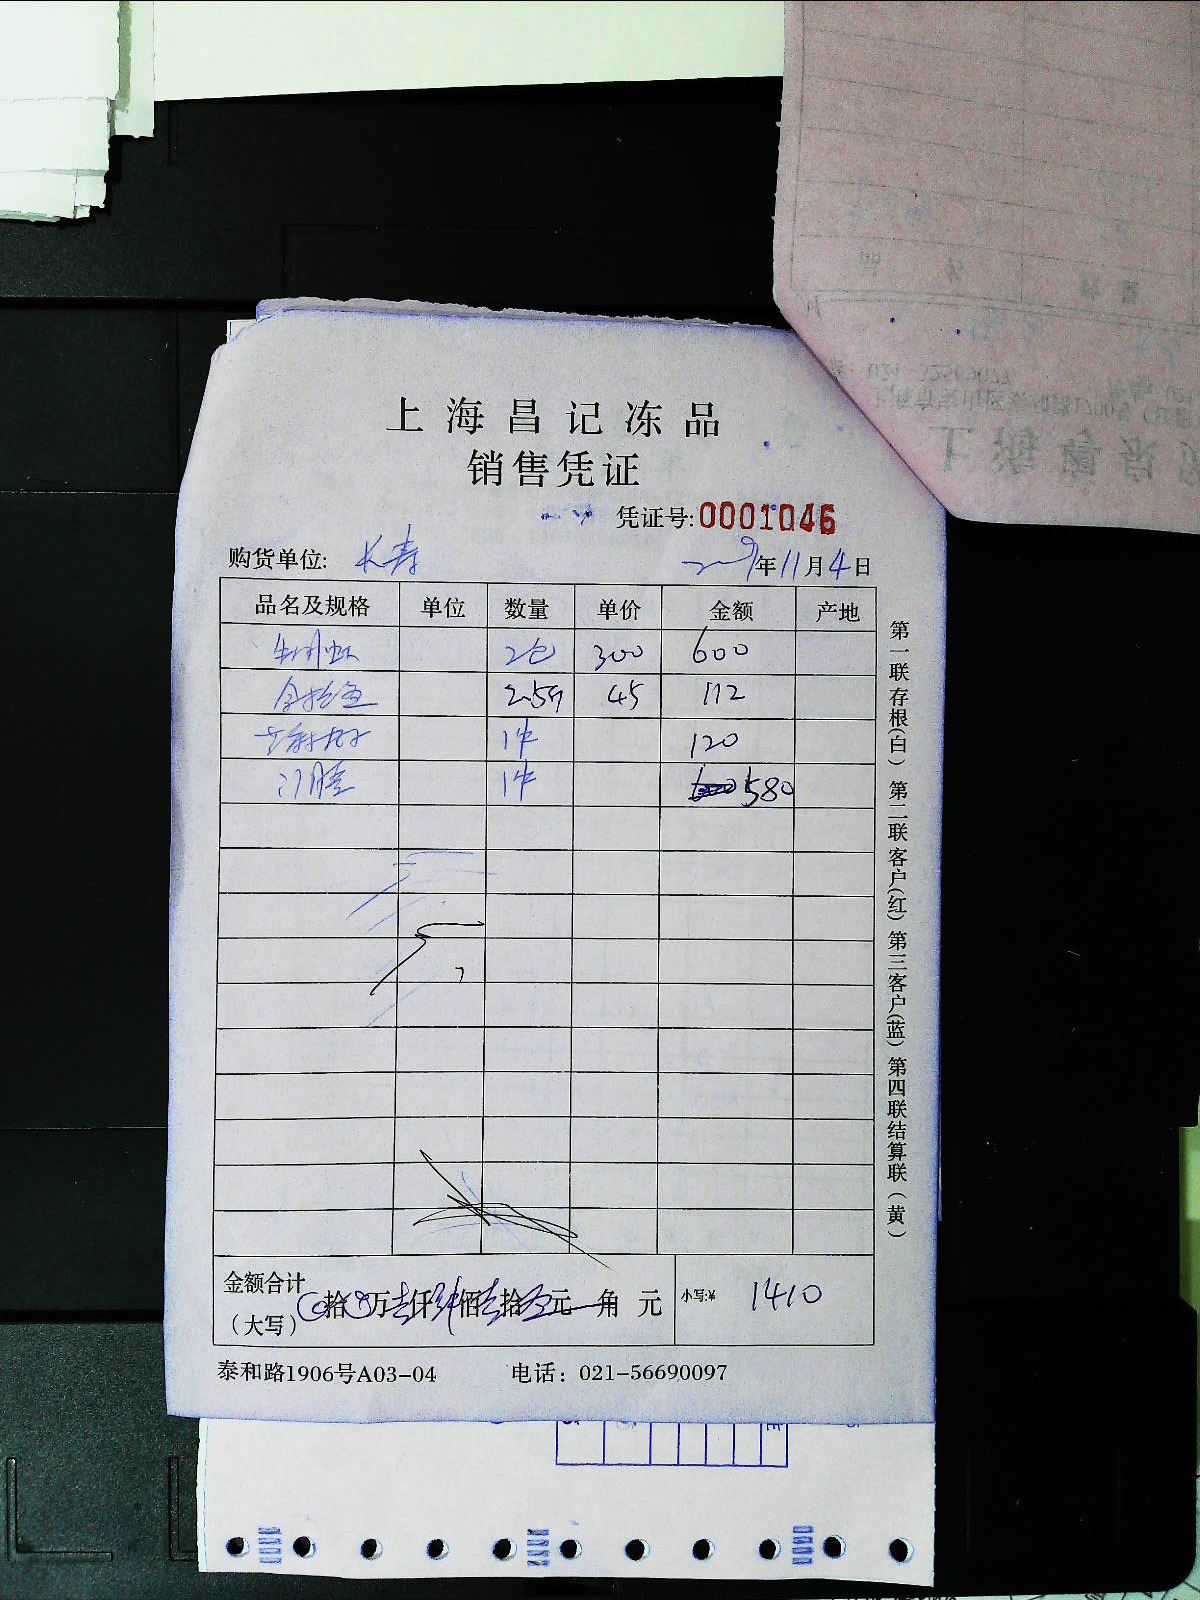 上海昌记冻品
销售凭证
凭证号:0001046
购货单位: 长寿 年11月4日
品名及规格 单位 数量 单价 金额 产地
2包 300 600
2.5斤 45 112
1件 120
门腔 1件 580
金额合计(大写) 拾 万 壹仟 肆佰 壹拾 元 角 元 小写:¥ 1410
泰和路1906号A03-04 电话：021-56690097
第一联存根(白) 第二联客户(红) 第三客户(蓝) 第四联结算联(黄)